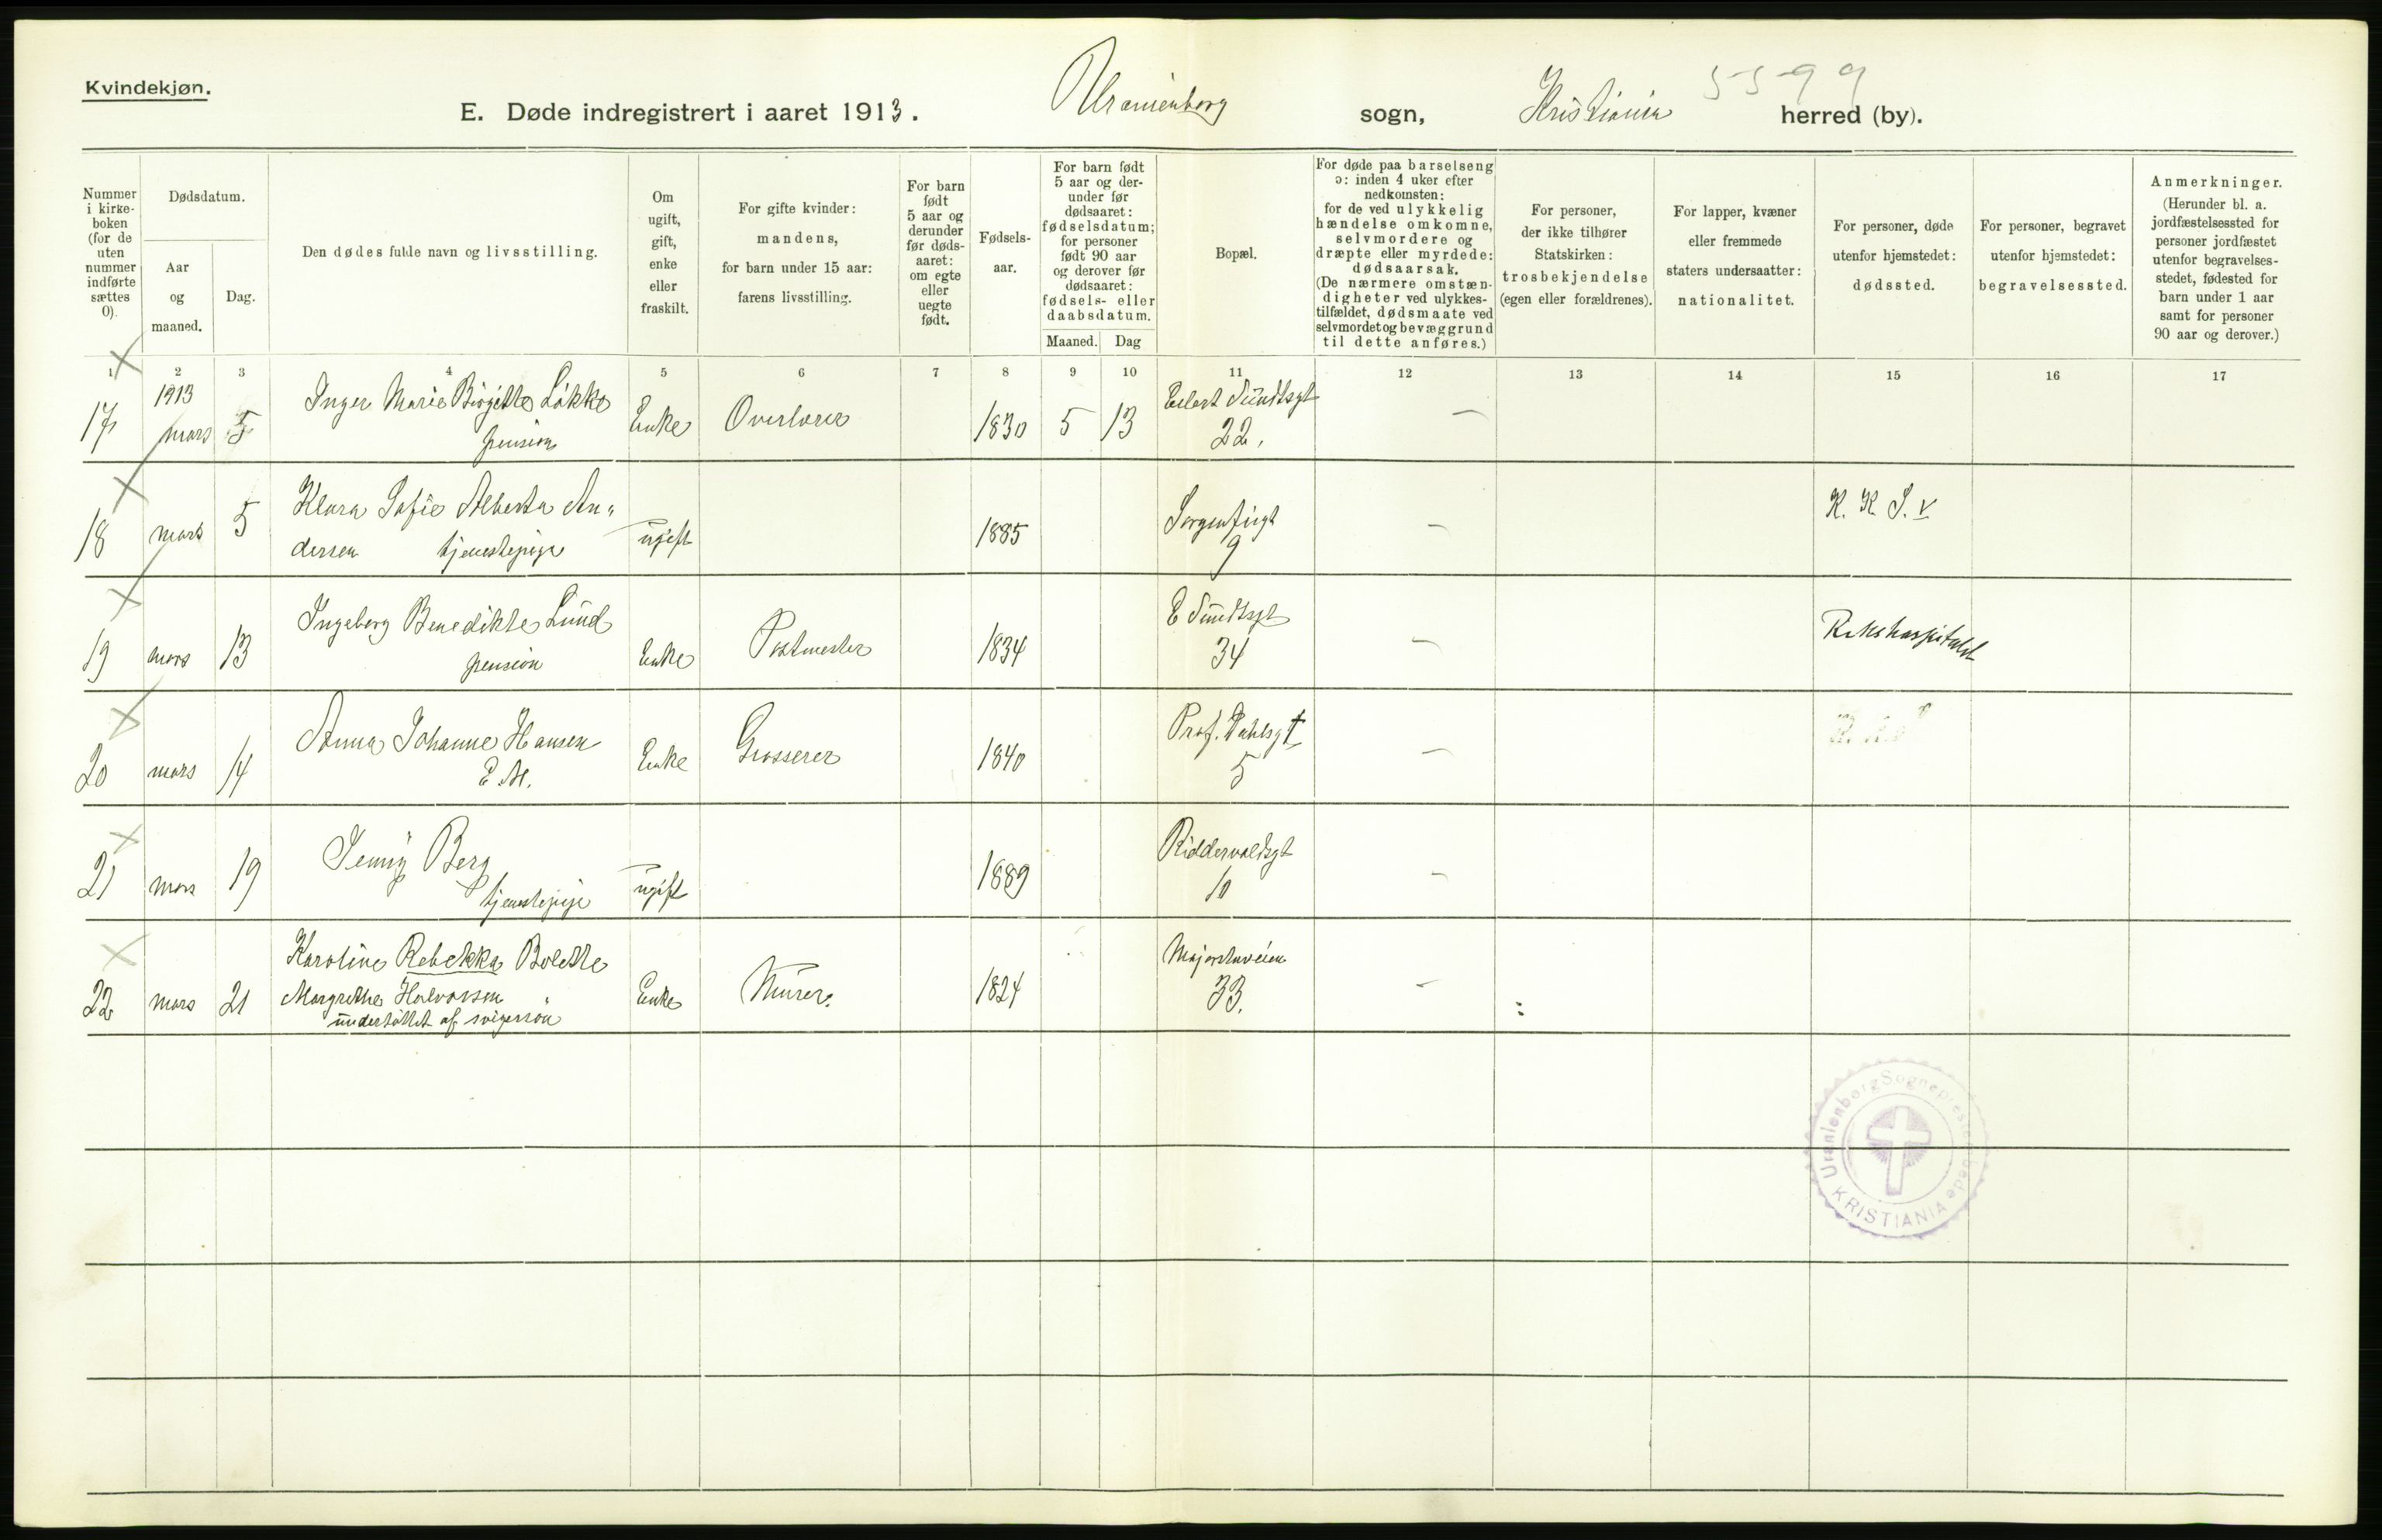 Kvindekjøn.
E. Døde indregistrert i aaret 1913. Uranienborg sogn, Kristiania herred (by).
5599
Nummer i kirke-boken (for de uten nummer indførte sættes 0).
Dødsdatum.
Aar og maaned.
Dag.
Den dødes fulde navn og livsstilling.
Om ugift, gift, enke eller fraskilt.
For gifte kvinder: mandens, for barn under 15 aar: farens livsstilling.
For barn født 5 aar og derunder før døds-aaret: om egte eller uegte født.
Fødsels-aar.
For barn født 5 aar og der-under før dødsaaret: fødselsdatum; for personer født 90 aar og derover før dødsaaret: fødsels- eller daabsdatum.
Maaned. Dag
Bopæl.
For døde paa barselseng ɔ: inden 4 uker efter nedkomsten: for de ved ulykkelig hændelse omkomne, selvmordere og dræpte eller myrdede: dødsaarsak. (De nærmere omstæn-digheter ved ulykkes-tilfældet, dødsmaate ved selvmordet og bevæggrund til dette anføres.)
For personer, der ikke tilhører Statskirken: trosbekjendelse (egen eller forældrenes).
For lapper, kvæner eller fremmede staters undersaatter: nationalitet.
For personer, døde utenfor hjemstedet: dødssted.
For personer, begravet utenfor hjemstedet: begravelsessted.
Anmerkninger. (Herunder bl. a. jordfæstelsessted for personer jordfæstet utenfor begravelses-stedet, fødested for barn under 1 aar samt for personer 90 aar og derover.)
1 2 3 4 5 6 7 8 9 10 11 12 13 14 15 16 17
1913
17 mars 5 Inger Marie Birgitte Løkke Enke Overlærer 1830 5 13 Eilert Sundtsgt —
pension 22.
18 mars 5 Klara Sofie Alberta An- ugift 1885 Sorgenfrigt — K. K. S. V
dersen tjenestepige 9
19 mars 13 Ingeborg Benedikte Lund Enke Postmester 1834 E Sundtsgt — Rikshospitalet
pension 34
20 mars 14 Anna Johanne Hansen Enke Grosserer 1840 Prof. Dahlsgt —
5
21 mars 19 Jenny Berg ugift 1889 Riddervoldsgt —
tjenestepige 10
22 mars 21 Karoline Rebekka Bolette Enke Murer. 1824 Majorstuveien —
Margrethe Halvorsen 33.
understøttet af svigersøn
Uranienborg Sogneprestembede
KRISTIANIA